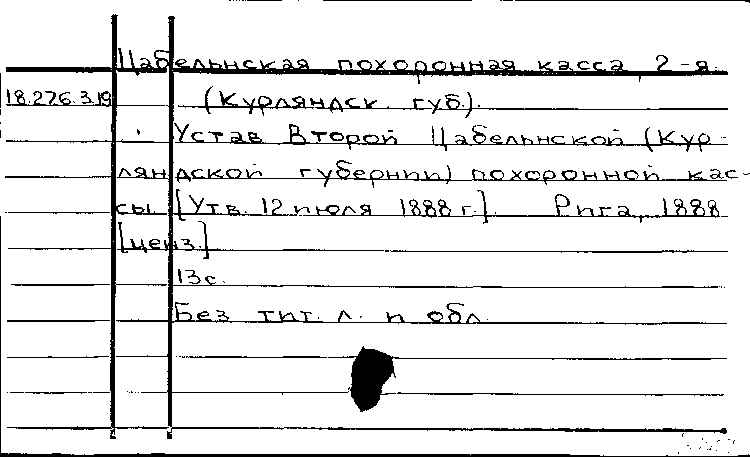 Цабельнская похоронная касса, 2-я.
18.276.3.19
(Курляндск. губ.).
Устав Второй Цабельнской (Кур-
ляндской губернии) похоронной кас-
сы [Утв. 12 июля 1888 г.]. Рига, 1888
[ценз.]
13 с.
Без тит. л. и обл.